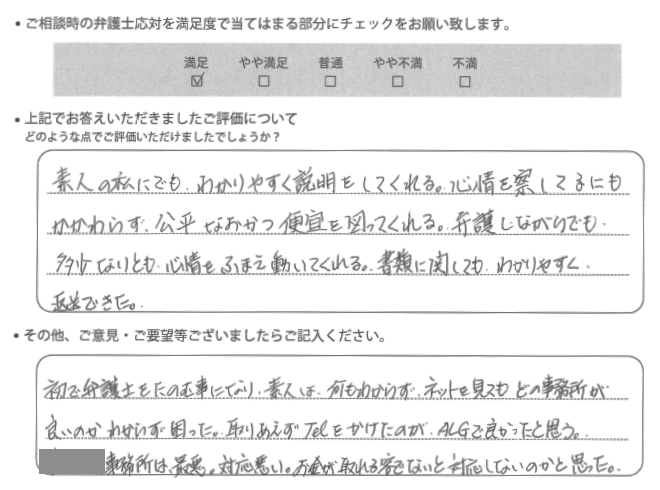 • ご相談時の弁護士応対を満足度で当てはまる部分にチェックをお願い致します。
満足 やや満足 普通 やや不満 不満
☑ ☐ ☐ ☐ ☐
• 上記でお答えいただきましたご評価について
どのような点でご評価いただけましたでしょうか？
素人の私にでも、わかりやすく説明をしてくれる。心情を察してるにも
かかわらず、公平なおかつ便宜を図ってくれる。弁護しながらでも、
多少なりとも、心情をふまえ動いてくれる。書類に関しても、わかりやすく、
返送できた。
• その他、ご意見・ご要望等ございましたらご記入ください。
初で弁護士をたのむ事になり、素人は、何もわからず、ネットを見てもどの事務所が
良いのかわからず困った。取りあえずTelをかけたのが、ALGで良かったと思う。
事務所は、最悪。対応悪い。お金が取れる客でないと対応しないのかと思った。